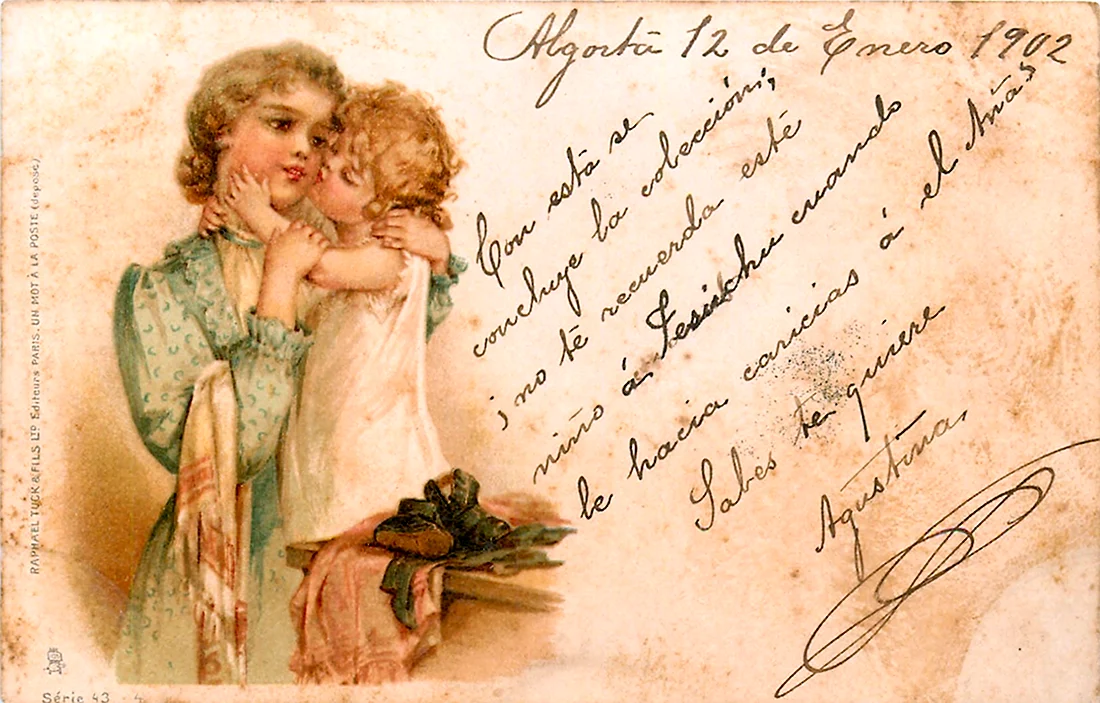 Algortà 12 de Enero 1902
Con està se
concluye la colección,
¿no tè recuerda estè
niño á Jesuchu cuando
le hacia caricias á el Ama?
Sabes te quiere
Agustina,
RAPHAEL TUCK & FILS LTD Editeurs PARIS. UN MOT À LA POSTE (déposé)
Série 43 - 4